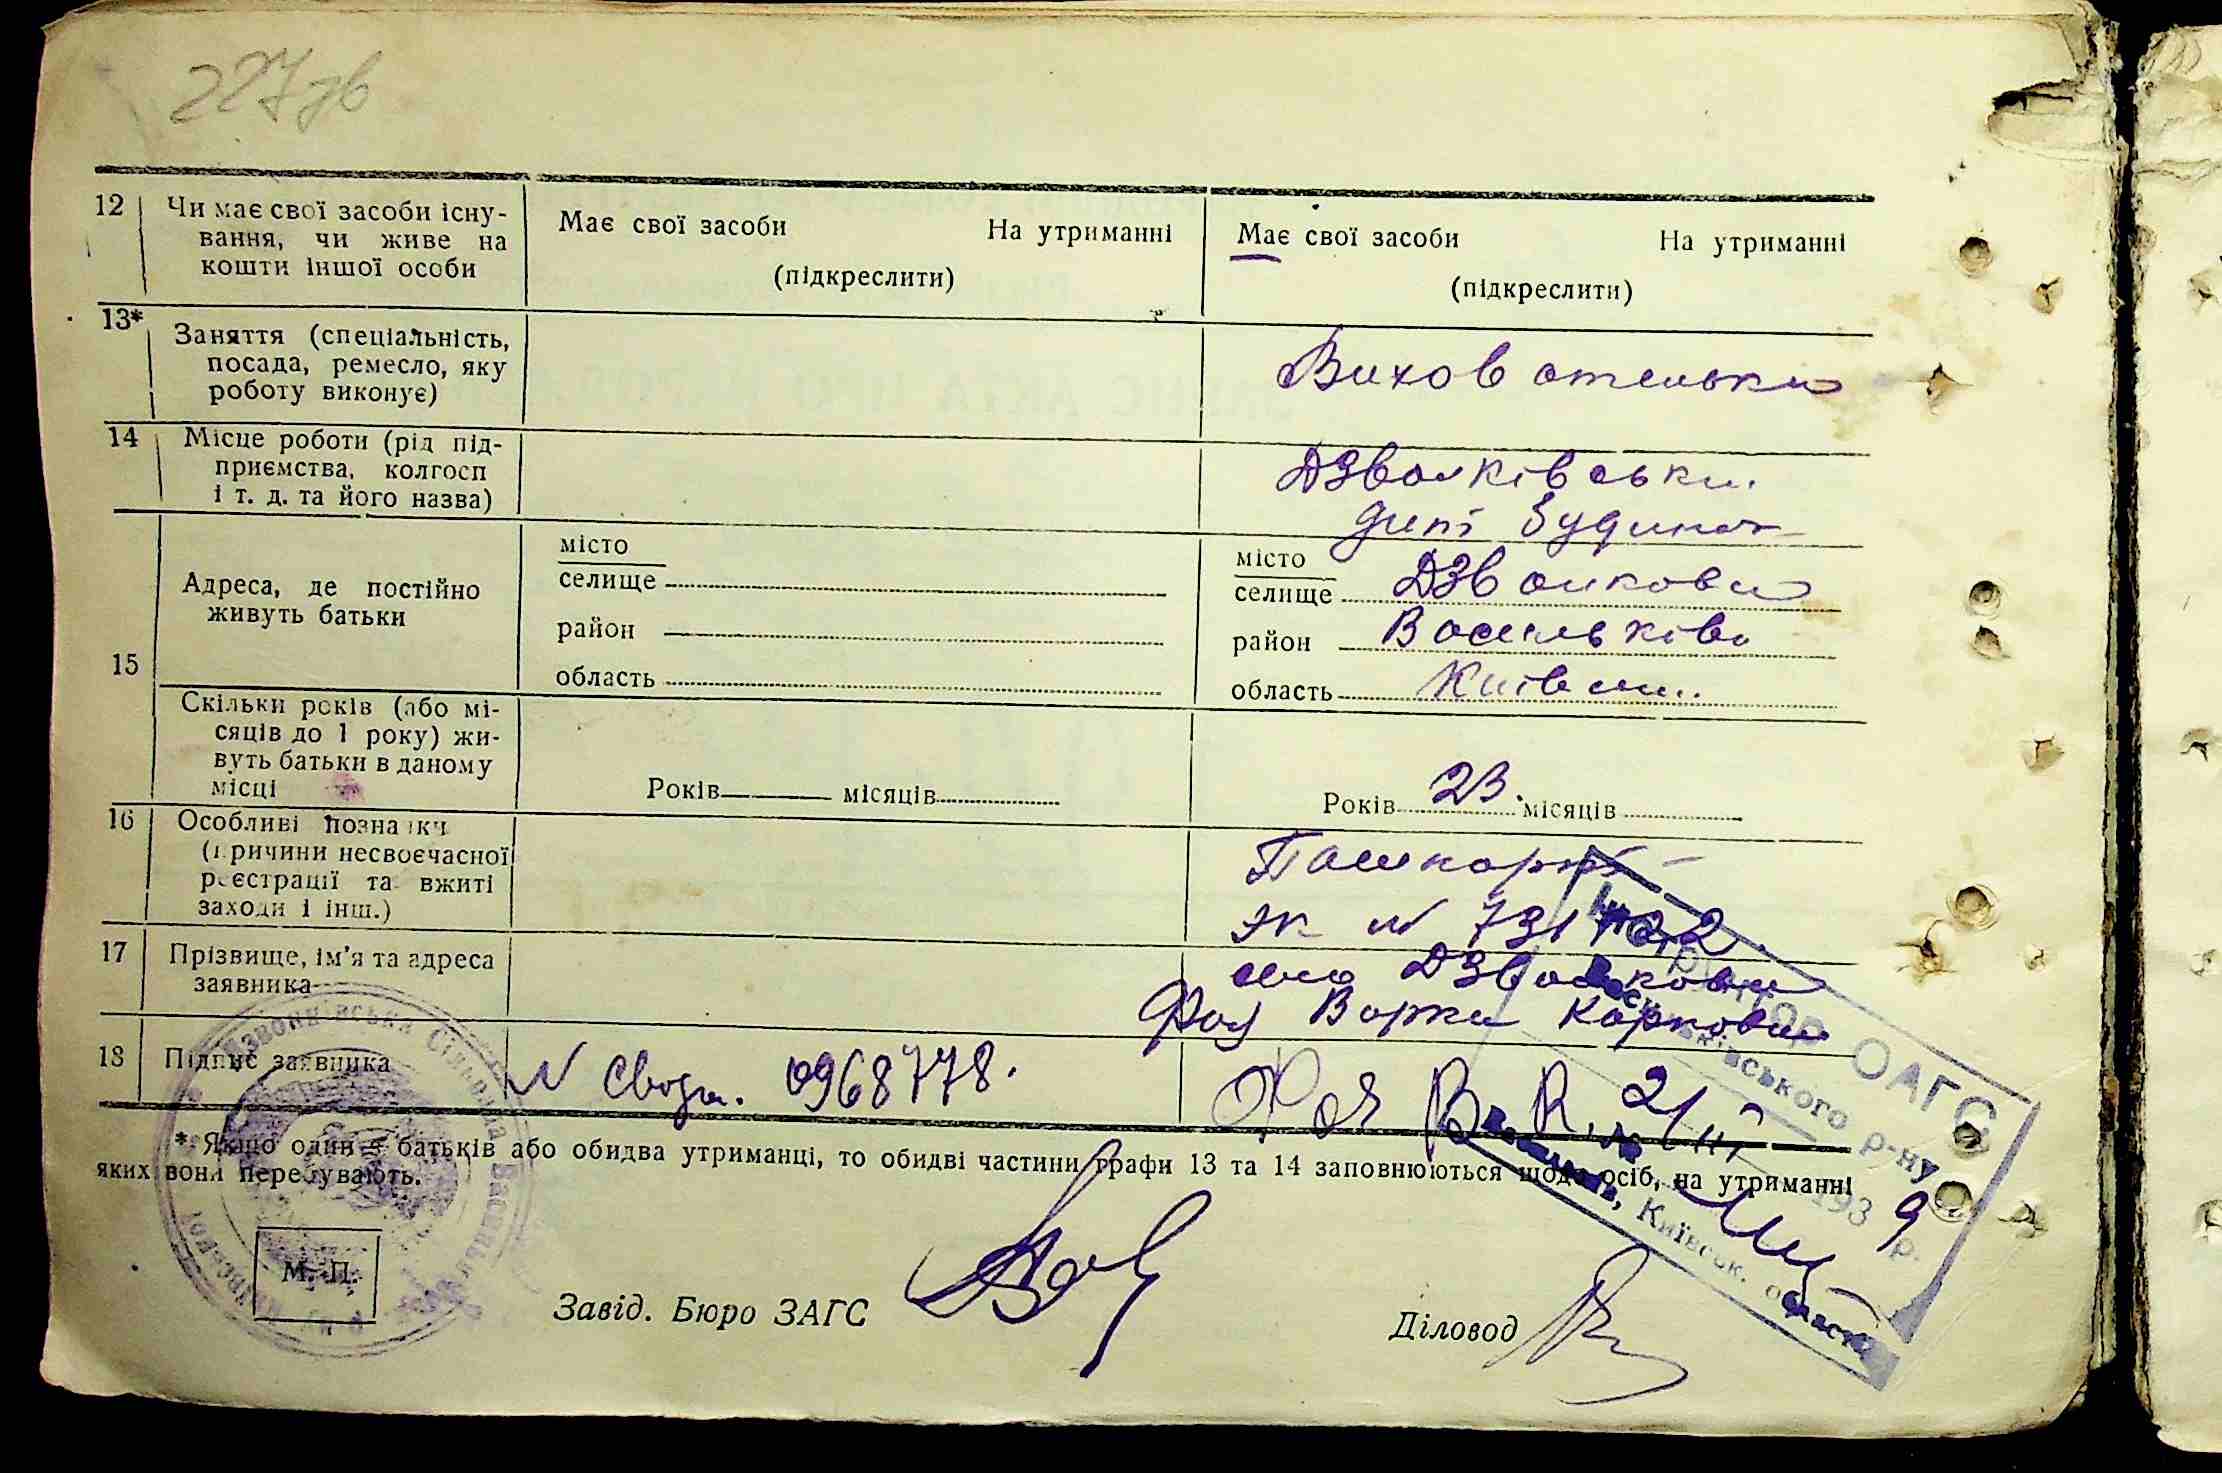 227зв
12 Чи має свої засоби існу-
вання, чи живе на
кошти іншої особи
Має свої засоби На утриманні
(підкреслити)
Має свої засоби На утриманні
(підкреслити)
13* Заняття (спеціальність,
посада, ремесло, яку
роботу виконує)
Вихователька
14 Місце роботи (рід під-
приємства, колгосп
і т. д. та його назва)
Дзвонківськи
дит будинок
15
Адреса, де постійно
живуть батьки
місто
селище
район
область
місто
селище Дзвонкова
район Васильків
область Київськ.
Скільки років (або мі-
сяців до 1 року) жи-
вуть батьки в даному
місці
Років місяців
Років 23. місяців
16 Особливі познаки
(причини несвоєчасної
реєстрації та вжиті
заходи і інш.)
Пашпорт
№
17 Прізвище, ім'я та адреса
заявника
село Дзвонкова
Варка Карковна
18 Підпис заявника
№ Свід. 0968778.
* Якщо один з батьків або обидва утриманці, то обидві частини графи 13 та 14 заповнюються щодо осіб, на утриманні
яких вони перебувають.
М. П.
Завід. Бюро ЗАГС
Діловод
Інструктор ОАГС
Васильківського р-ну
21/III 1939 р.
м. Васильків, Київськ. область